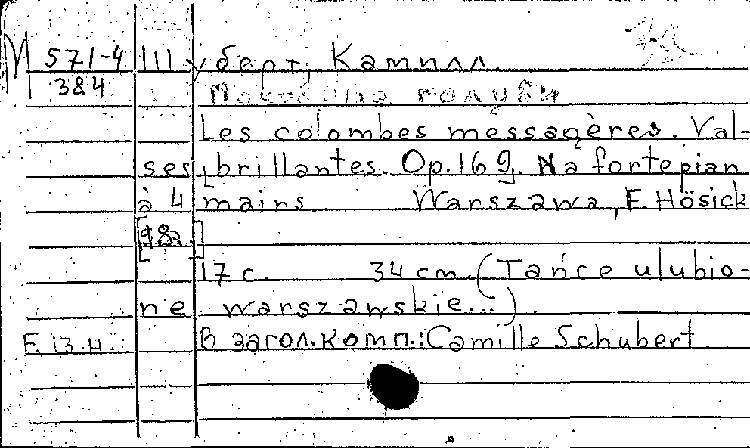 М 571-4 Шуберт, Камилл.
384 голуби
Les colombes messagères. Val-
ses brillantes. Op. 169. Na fortepian
à 4 mains Warszawa, F. Hösick
[18..]
17 с. 34 cm. (Tańce ulubio-
ne warszawskie...).
В загол. комп.: Camille Schubert